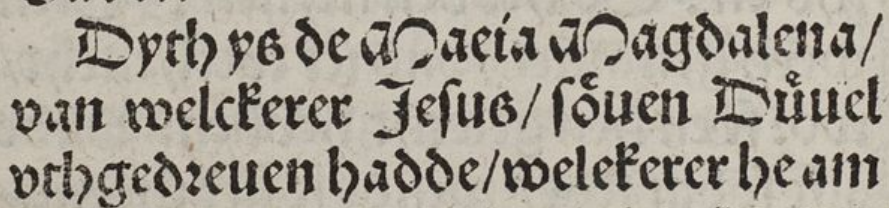 Dyth ys de Maeia Magdalena/
van welckerer Jeſus/ ſoͤuen Duͤuel
vthgedꝛeuen hadde/welekerer he am